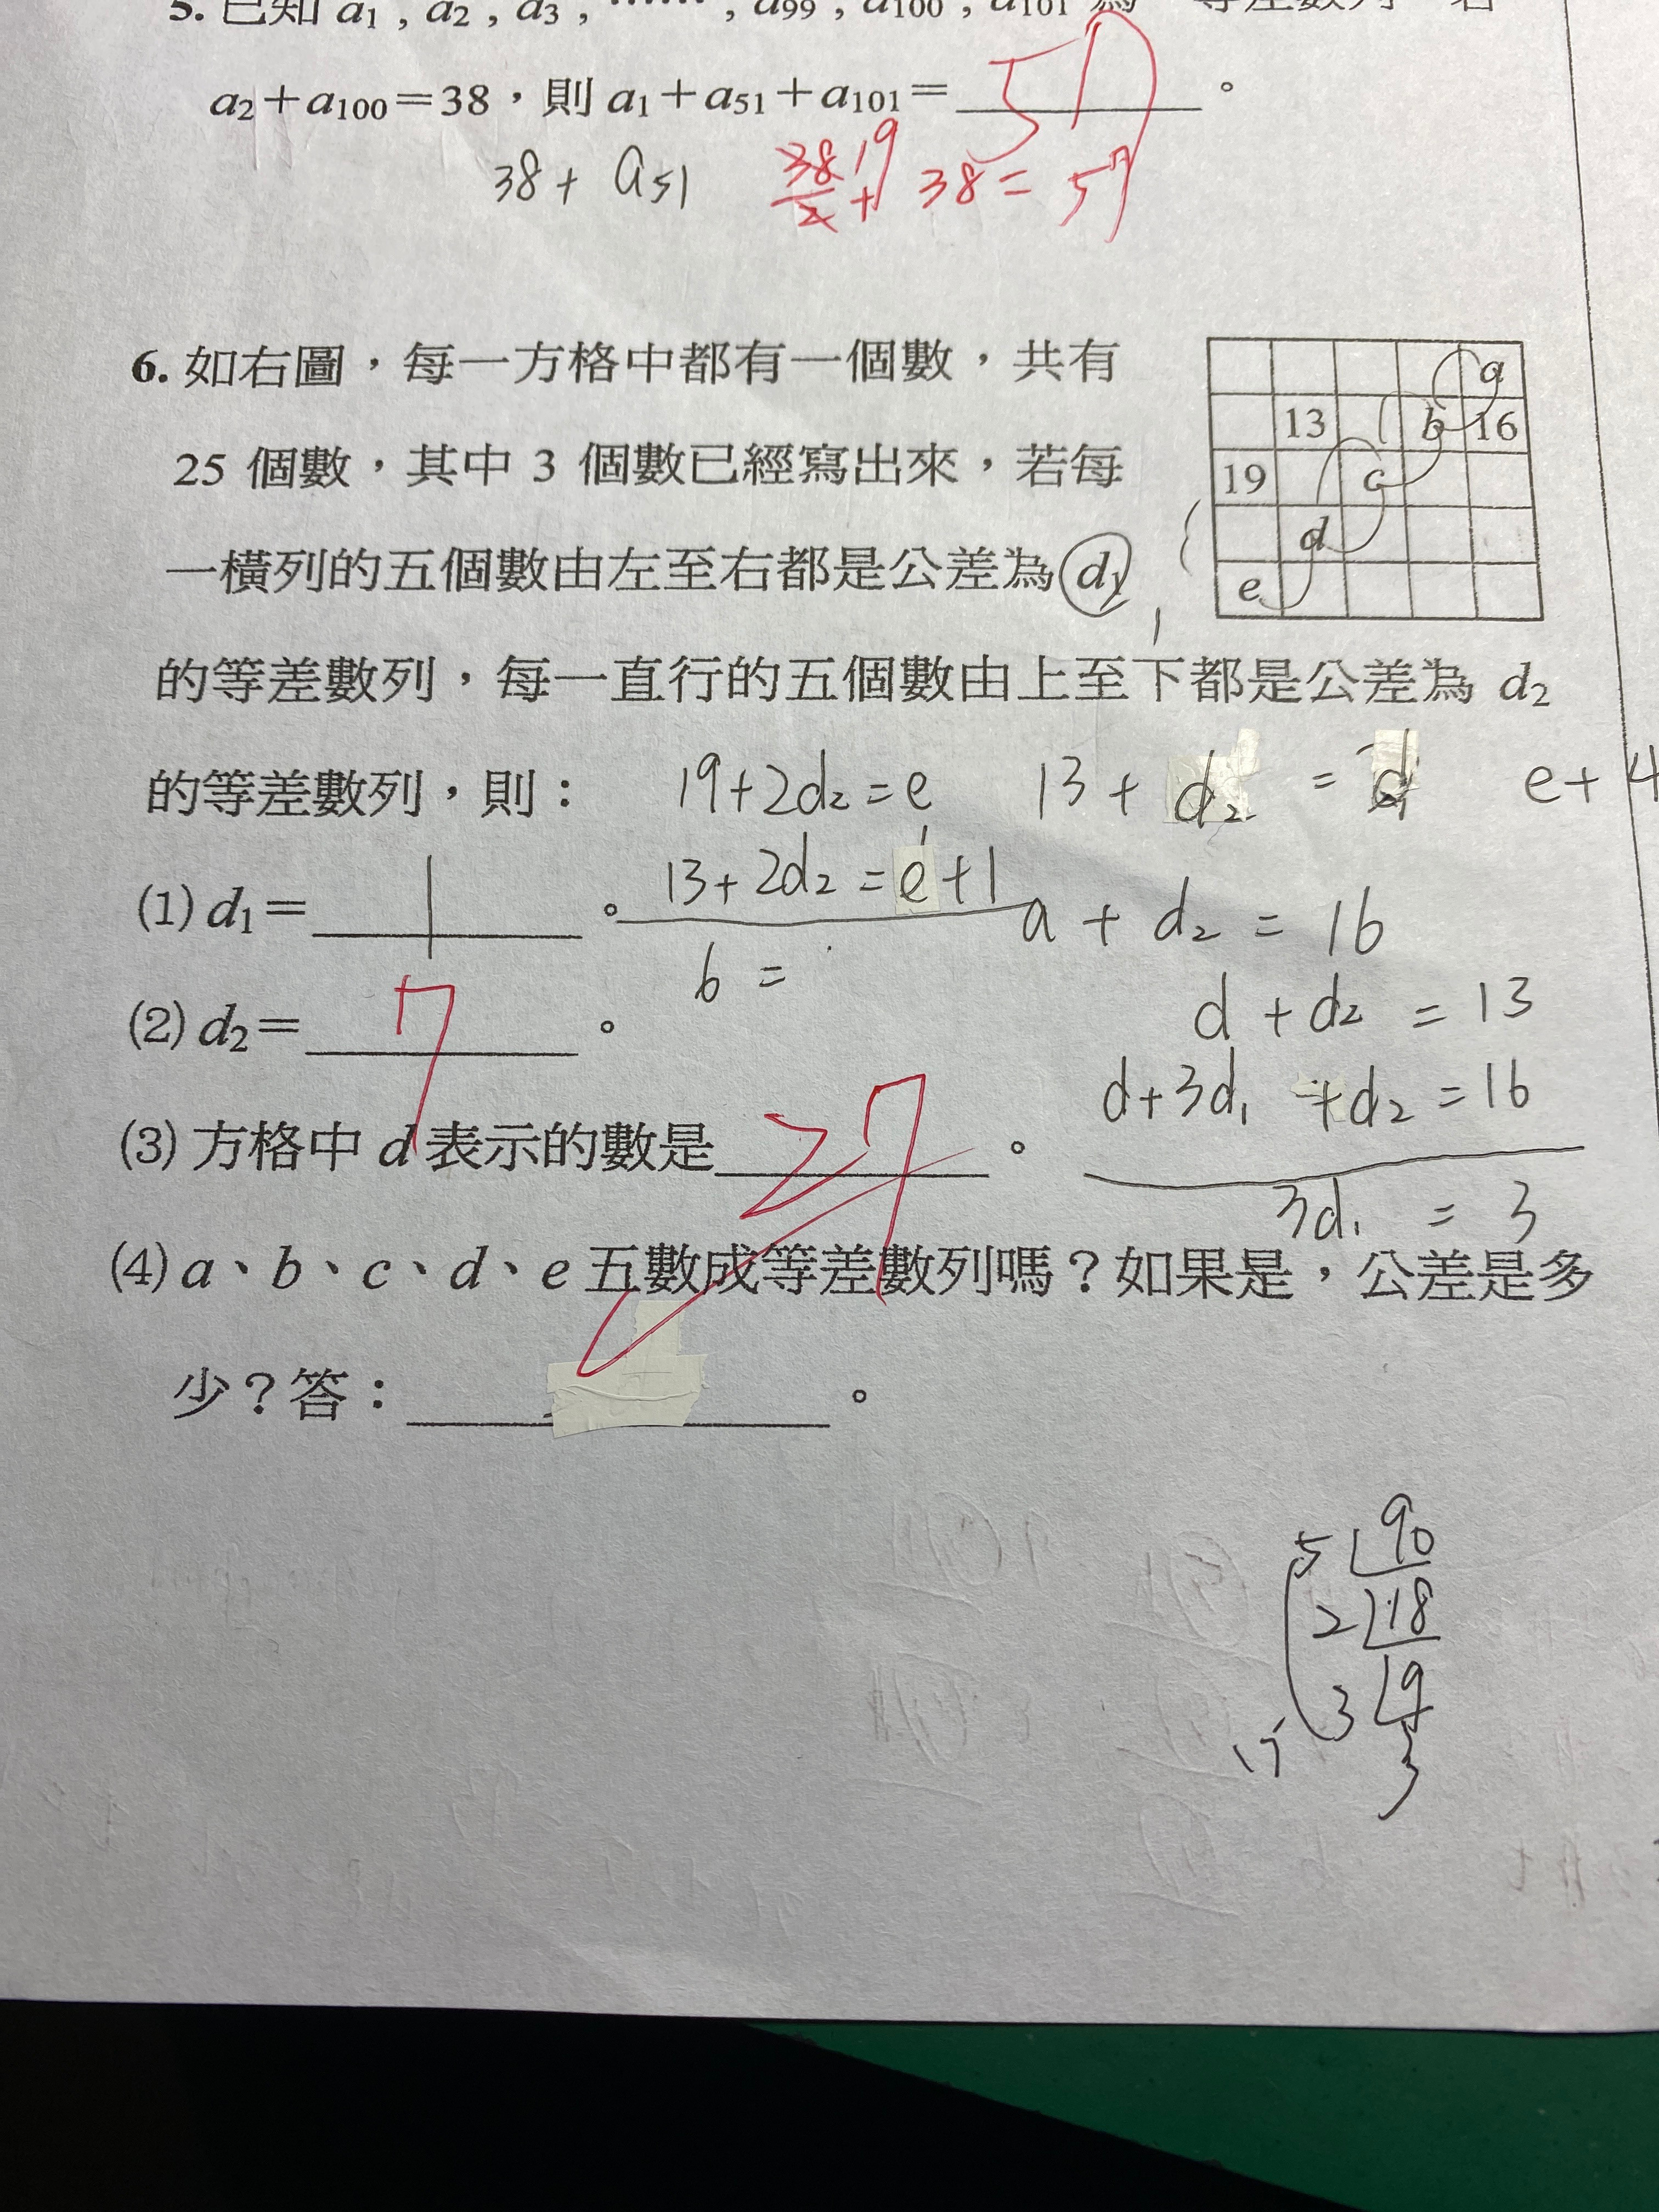 5. 已知 a₁ , a₂ , a₃ , …… , a₉₉ , a₁₀₀ , a₁₀₁ 為 等差數列 若
a₂+a₁₀₀=38，則 a₁+a₅₁+a₁₀₁= 57 。
38+ a₅₁ 38/2 19 + 38 = 57
6. 如右圖，每一方格中都有一個數，共有
25 個數，其中 3 個數已經寫出來，若每
一橫列的五個數由左至右都是公差為 d₁
的等差數列，每一直行的五個數由上至下都是公差為 d₂
的等差數列，則： 19+2d₂=e 13+d₂ = d e+4
a
13 b 16
19 c
d
e
1
(1) d₁= 1 。 13+2d₂=e+1
a + d₂ = 16
6 =
(2) d₂= 7 。
d +d₂ = 13
d+3d₁ +d₂ =16
(3) 方格中 d 表示的數是 27 。
3d₁ = 3
(4) a、b、c、d、e 五數成等差數列嗎？如果是，公差是多
少？答： 。
5 90
2 18
3 9
3
15